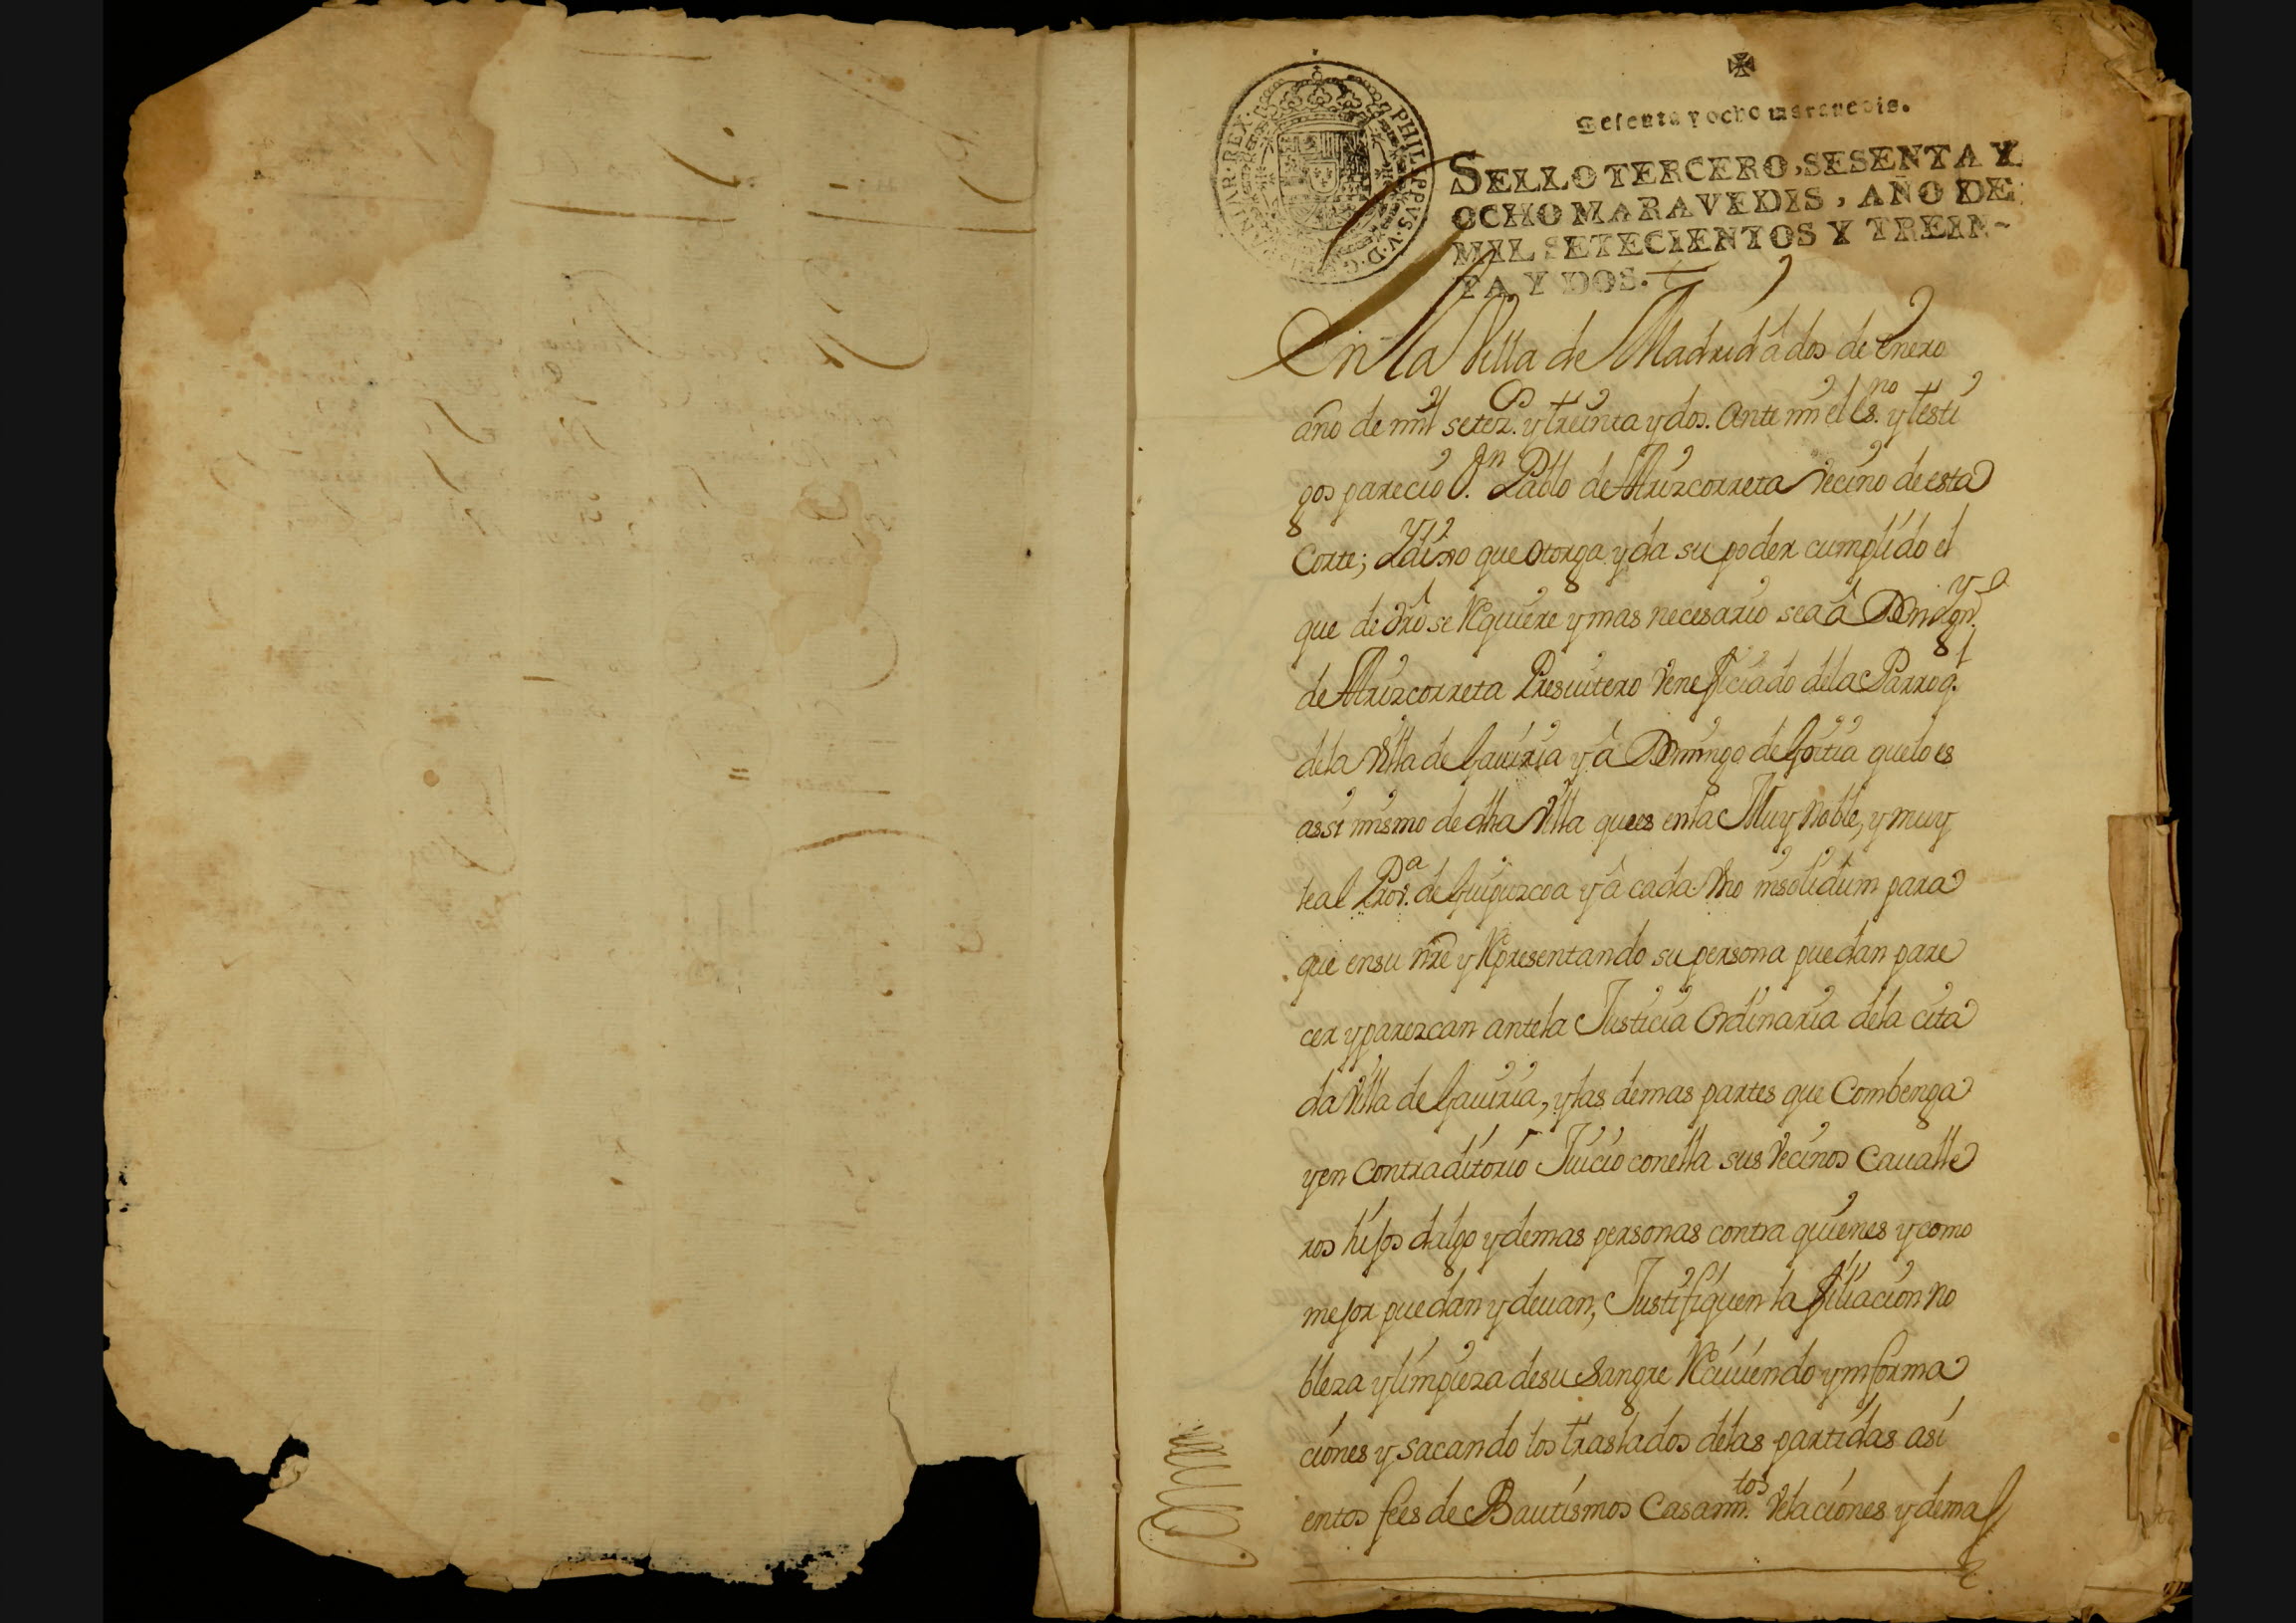 PHILIPPVS·V·D·G· HISPANIAR·REX·
Sesenta y ocho maravedis.
SELLO TERCERO, SESENTA Y
OCHO MARAVEDIS, AÑO DE
MIL SETECIENTOS Y TREIN-
TA Y DOS.
En la Villa de Madrid â dos de Enero
año de mil setez.s y treinta y dos. Ante mi el es.no y testi
gos parecio D.n Pablo de Arizcorreta Vecino de esta
Corte; y dixo que otorga y da su poder cumplido el
que de dro se Requiere y mas necesario sea â Dn
de Arizcorreta Presvitero Veneficiado de la Parroq.l
de la Villa de Gaviria y â Domingo de Gorria que lo es
assi mismo de dha Villa que es en la Muy Noble, y muy
leal Pros.a de Guipuzcoa y â cada Vno insolidum para
que en su nre y Representando su persona puedan pare
cer y parezcan ante la Justicia Ordinaria de la cita
da Villa de Gaviria, y las demas partes que Combenga
y en Contraditorio Juicio con ella sus Vecinos Cavalle
ros hijos dalgo y demas personas contra quienes y como
mejor puedan y devan, Justifiquen la filiacion no
bleza y limpieza de su Sangre Reciviendo ynforma
ciones y sacando los traslados de las partidas asi
entos fees de Bautismos Casam.tos Velaciones y demas